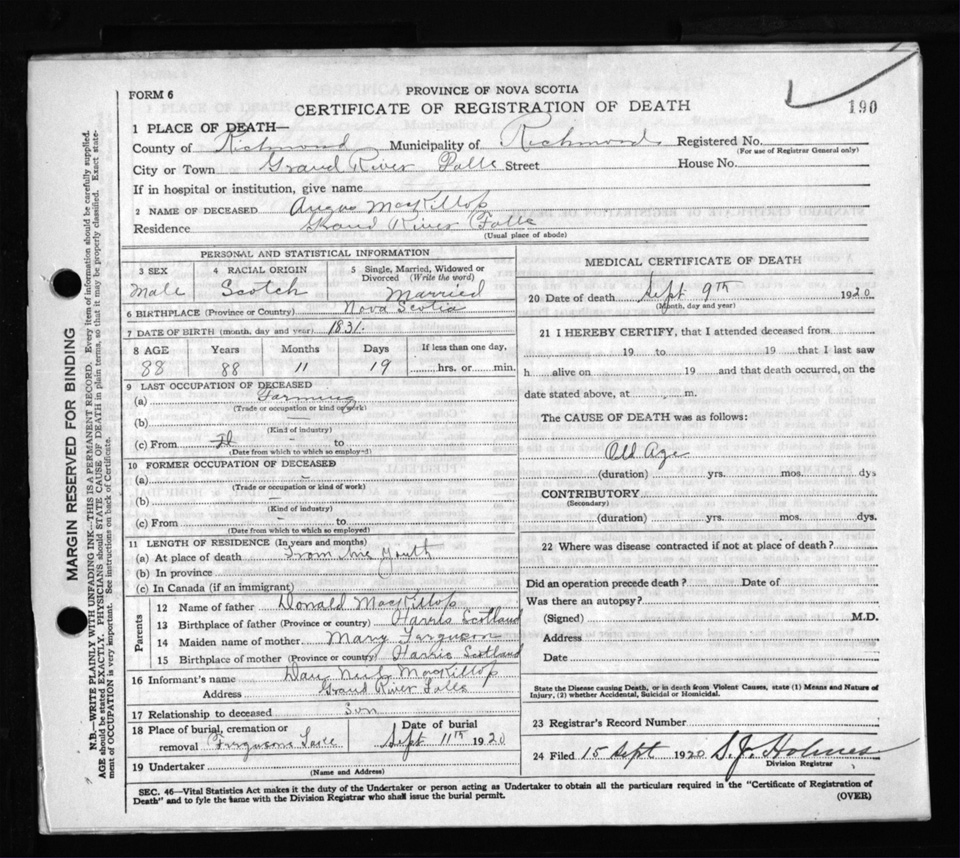 FORM 6
PROVINCE OF NOVA SCOTIA
CERTIFICATE OF REGISTRATION OF DEATH
190
1 PLACE OF DEATH—
County of Richmond Municipality of Richmond Registered No.
(For use of Registrar General only)
City or Town Grand River Falls Street House No.
If in hospital or institution, give name
2 NAME OF DECEASED Angus MacKillop
Residence Grand River Falls
(Usual place of abode)
PERSONAL AND STATISTICAL INFORMATION
3 SEX 4 RACIAL ORIGIN 5 Single, Married, Widowed or Divorced (Write the word)
Male Scotch Married
6 BIRTHPLACE (Province or Country) Nova Scotia
7 DATE OF BIRTH (month, day and year) 1831.
8 AGE Years Months Days If less than one day,
88 88 11 19 hrs. or min.
9 LAST OCCUPATION OF DECEASED
(a) Farming
(Trade or occupation or kind of work)
(b) —
(Kind of industry)
(c) From to
(Date from which to which so employed)
10 FORMER OCCUPATION OF DECEASED
(a) —
(Trade or occupation or kind of work)
(b) —
(Kind of industry)
(c) From — to
(Date from which to which so employed)
11 LENGTH OF RESIDENCE (In years and months)
(a) At place of death From his Youth
(b) In province
(c) In Canada (if an immigrant)
Parents
12 Name of father Donald MacKillop
13 Birthplace of father (Province or country) Harris Scotland
14 Maiden name of mother Mary Ferguson
15 Birthplace of mother (Province or country) Harris Scotland
16 Informant's name MacKillop
Address Grand River Falls
17 Relationship to deceased Son
18 Place of burial, cremation or removal Fergusons Date of burial Sept 11th 1920
19 Undertaker
(Name and Address)
MEDICAL CERTIFICATE OF DEATH
20 Date of death Sept 9TH 1920
(Month, day and year)
21 I HEREBY CERTIFY, that I attended deceased from
19 to 19 that I last saw
h alive on 19 and that death occurred, on the
date stated above, at m.
The CAUSE OF DEATH was as follows:
Old Age
(duration) yrs. mos. dys
CONTRIBUTORY
(Secondary)
(duration) yrs. mos. dys.
22 Where was disease contracted if not at place of death?
Did an operation precede death? Date of
Was there an autopsy?
(Signed) M.D.
Address
Date
State the Disease causing Death, or in death from Violent Causes, state (1) Means and Nature of
Injury, (2) whether Accidental, Suicidal or Homicidal.
23 Registrar's Record Number
24 Filed 15 Sept 1920 S.J. Holmes
Division Registrar
SEC. 46—Vital Statistics Act makes it the duty of the Undertaker or person acting as Undertaker to obtain all the particulars required in the "Certificate of Registration of
Death" and to fyle the same with the Division Registrar who shall issue the burial permit.
(OVER)
MARGIN RESERVED FOR BINDING
N.B.—WRITE PLAINLY WITH UNFADING INK—THIS IS A PERMANENT RECORD. Every item of information should be carefully supplied.
AGE should be stated EXACTLY. PHYSICIANS should STATE CAUSE OF DEATH in plain terms, so that it may be properly classified. Exact state-
ment of OCCUPATION is very important. See instructions on back of Certificate.